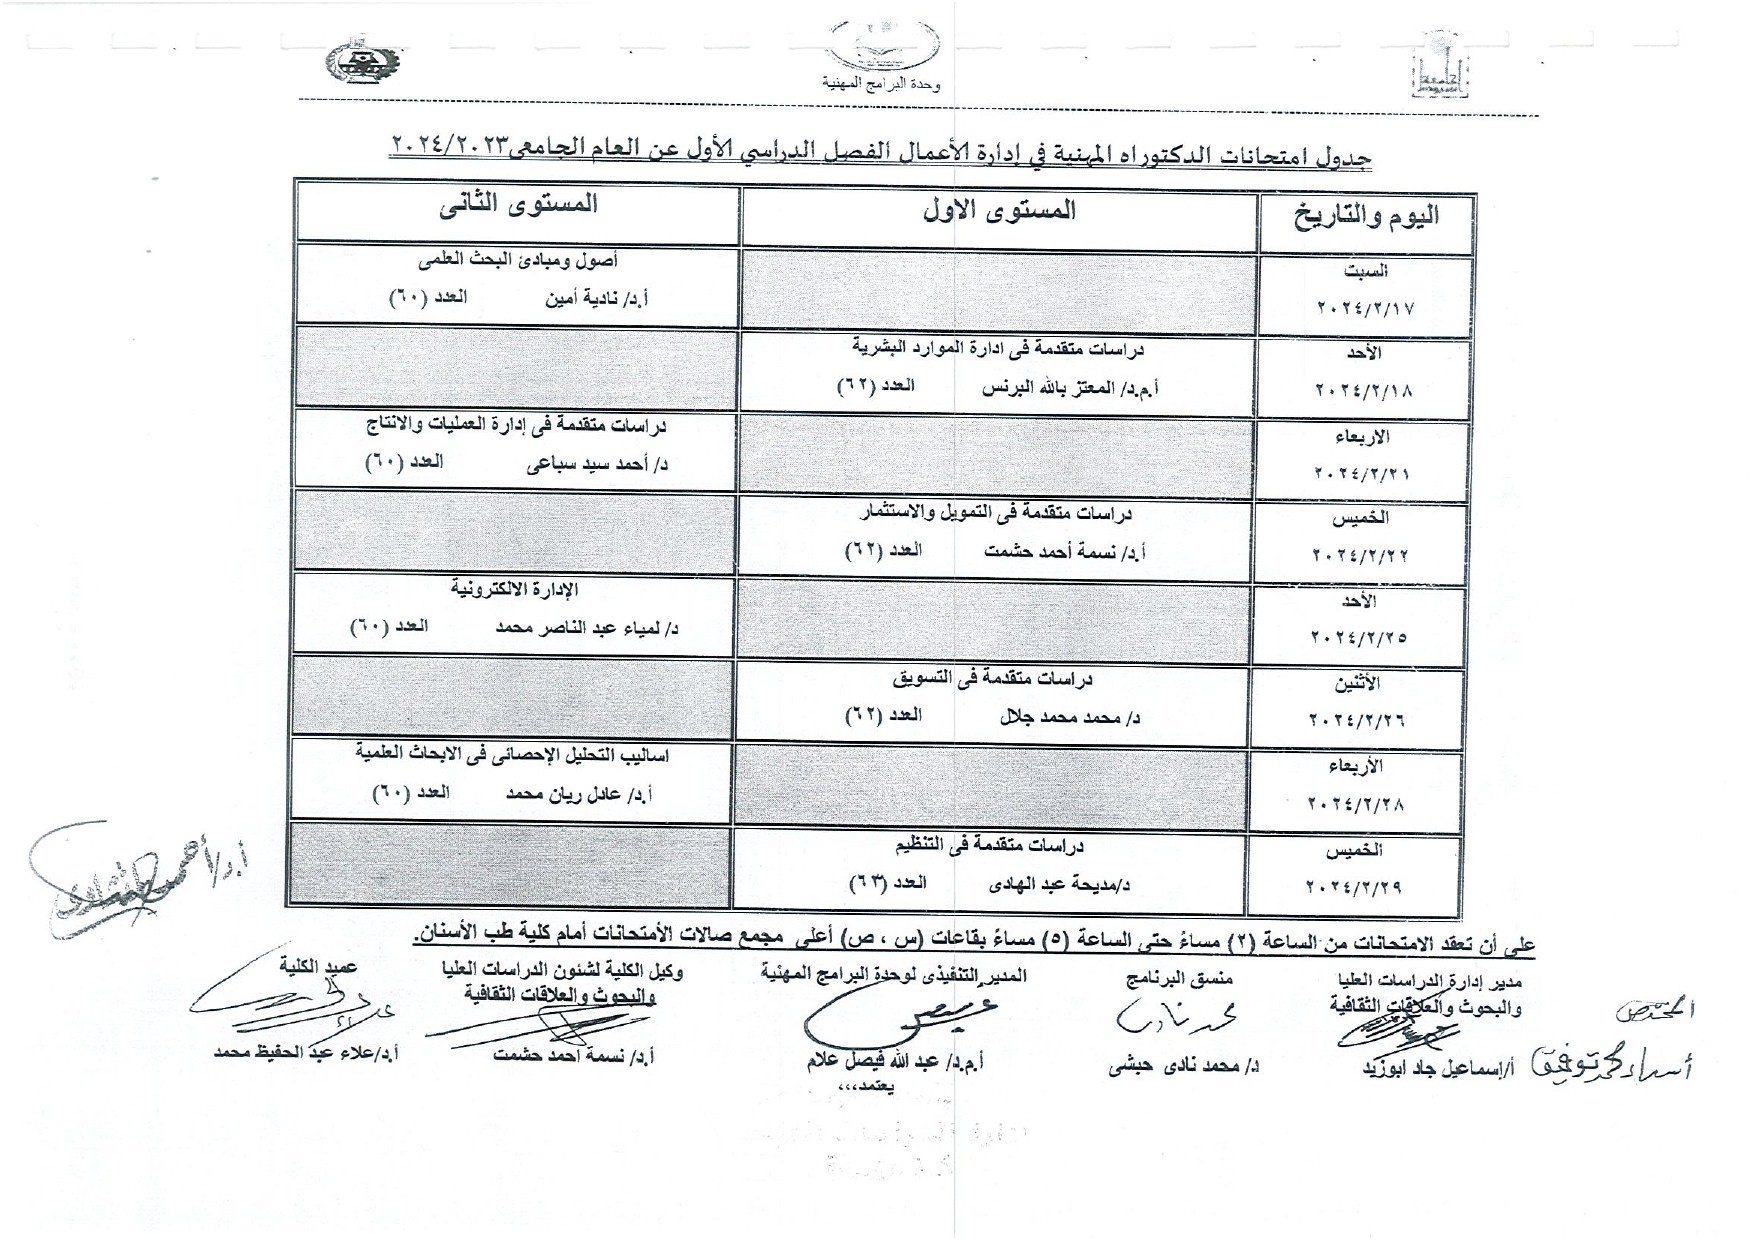 جامعة
أسيوط
وحدة البرامج المهنية
جدول امتحانات الدكتوراه المهنية في إدارة الأعمال الفصل الدراسي الأول عن العام الجامعى٢٠٢٤/٢٠٢٣
اليوم والتاريخ المستوى الاول المستوى الثانى
السبت
٢٠٢٤/٢/١٧
أصول ومبادئ البحث العلمى
أ.د/ نادية أمين العدد (٦٠)
الأحد
٢٠٢٤/٢/١٨
دراسات متقدمة فى ادارة الموارد البشرية
أ.م.د/ المعتز بالله البرنس العدد (٦٢)
الاربعاء
٢٠٢٤/٢/٢١
دراسات متقدمة فى إدارة العمليات والانتاج
د/ أحمد سيد سباعى العدد (٦٠)
الخميس
٢٠٢٤/٢/٢٢
دراسات متقدمة فى التمويل والاستثمار
أ.د/ نسمة أحمد حشمت العدد (٦٢)
الأحد
٢٠٢٤/٢/٢٥
الإدارة الالكترونية
د/ لمياء عبد الناصر محمد العدد (٦٠)
الأثنين
٢٠٢٤/٢/٢٦
دراسات متقدمة فى التسويق
د/ محمد محمد جلال العدد (٦٢)
الأربعاء
٢٠٢٤/٢/٢٨
اساليب التحليل الإحصائى فى الابحاث العلمية
أ.د/ عادل ريان محمد العدد (٦٠)
الخميس
٢٠٢٤/٢/٢٩
دراسات متقدمة فى التنظيم
د/مديحة عبد الهادى العدد (٦٣)
أ.د/أحمد
على أن تعقد الامتحانات من الساعة (٢) مساءً حتى الساعة (٥) مساءً بقاعات (س ، ص) أعلى مجمع صالات الأمتحانات أمام كلية طب الأسنان.
المختص
أسماء محمد توفيق
مدير إدارة الدراسات العليا
والبحوث والعلاقات الثقافية
أ/إسماعيل جاد ابوزيد
منسق البرنامج
محمد نادى
د/ محمد نادى حبشى
المدير التنفيذى لوحدة البرامج المهنية
أ.م.د/ عبد الله فيصل علام
وكيل الكلية لشئون الدراسات العليا
والبحوث والعلاقات الثقافية
أ.د/ نسمة احمد حشمت
عميد الكلية
أ.د/علاء عبد الحفيظ محمد
يعتمد،،،